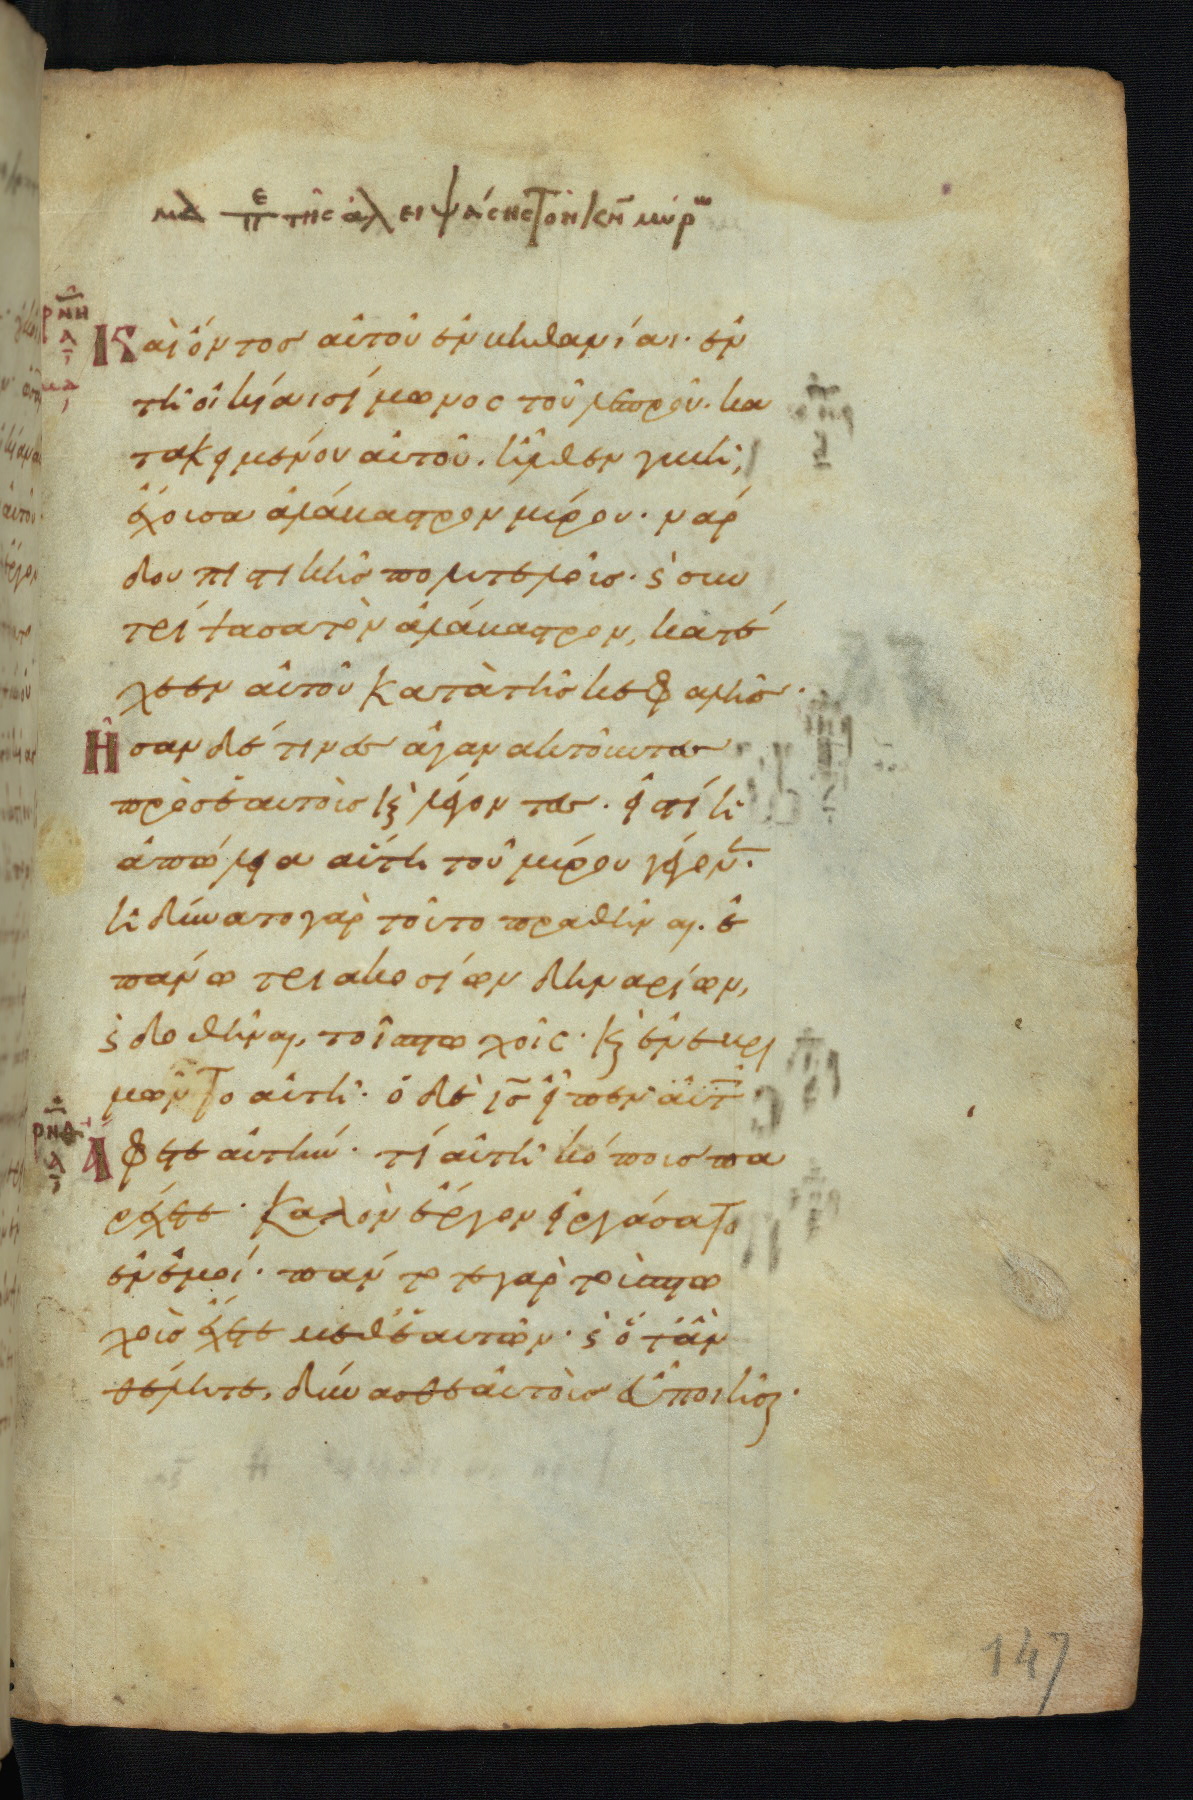 μδ πε τῆς ἀλειψάσης τὸν κν μύρω
ρνη
α
Καὶ ὄντος αὐτοῦ ἐν βηθανίαι· ἐν
τῆ οἰκίαι σίμωνος τοῦ λεπροῦ. κα
τακειμένου αὐτοῦ. ἦλθεν γυνὴ,
ἔχουσα ἀλάβαστρον μύρου· νάρ
δου πιστικῆς πολυτελοῦς· ϗ συν
τρίψασα τὸν ἀλάβαστρον, κατέ
χεεν αὐτοῦ κατὰ τῆς κεφαλῆς·
Ἦσαν δέ τινες ἀγανακτοῦντες
πρὸς ἑαυτοὺς ϗ λέγοντες· εἰς τί ἡ
ἀπώλεια αὕτη τοῦ μύρου γέγονεν·
ἠδύνατο γὰρ τοῦτο πραθῆναι· ἐ
πάνω τριακοσίων δηναρίων,
ϗ δοθῆναι τοῖς πτωχοῖς· ϗ ἐνεβρι
μῶντο αὐτῆ· ὁ δὲ ις εἶπεν αὐτοῖς
ρνθ
α
Ἄφετε αὐτήν· τί αὐτῆ κόπους πα
ρέχετε· καλὸν ἔργον εἰργάσατο
ἐν ἐμοί· πάντοτε γὰρ τοὺς πτω
χοὺς ἔχετε μεθ' ἑαυτῶν· ϗ ὅταν
θέλητε, δύνασθε αὐτοὺς εὖ ποιῆσαι·
147